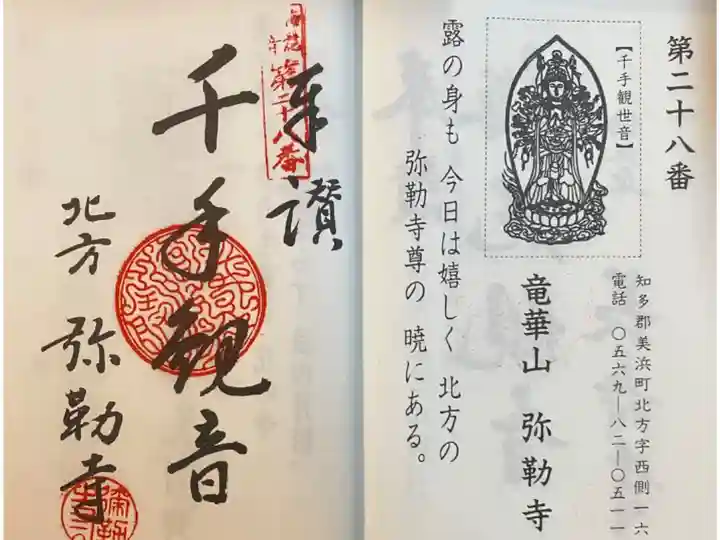 第二十八番
【千手観世音】
知多郡美浜町北方字西側一六
電話 〇五六九―八二―〇五一一
竜華山 弥勒寺
露の身も 今日は嬉しく 北方の
弥勒寺尊の 暁にある。
第二十八番
奉讃
千手観音
北方 弥勒寺